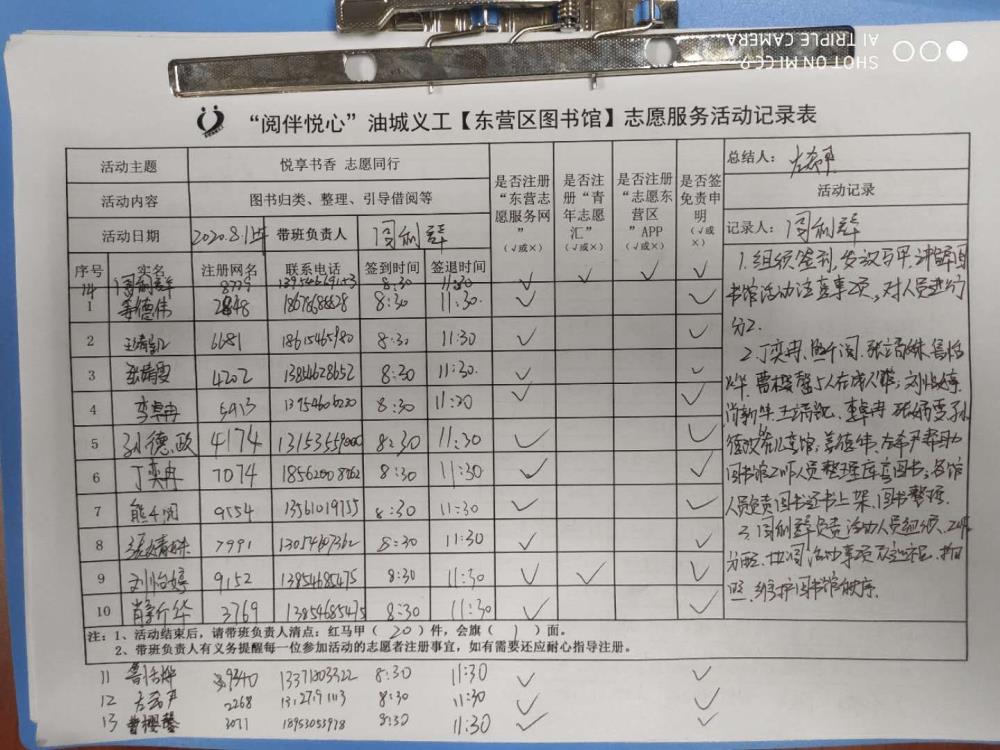 SHOT ON MI CC9
AI TRIPLE CAMERA
“阅伴悦心”油城义工【东营区图书馆】志愿服务活动记录表
活动主题 悦享书香 志愿同行
活动内容 图书归类、整理、引导借阅等
活动日期 2020.8.1上午 带班负责人 闫利群
是否注册“东营志愿服务网”(√或×)
是否注册“青年志愿汇”(√或×)
是否注册“志愿东营区”APP(√或×)
是否签免责申明(√或×)
总结人：
活动记录
记录人：闫利群
序号 实名 注册网名 联系电话 签到时间 签退时间
闫利群 8779 8:30 11:30 √ √ √ √
1 姜德伟 2848 18678688628 8:30 11:30. √ √
2 6681 18615465980 8:30 11:30 √ √
3 张婧雯 4202 13854628652 8:30 11:30. √ √
4 李卓冉 5913 13954606220 8:30 11:30 √ √
5 孙德政 4174 8:30 11:30 √ √
6 丁奕冉 7074 8:30 11:30 √ √
7 熊千阅 9554 13561019755 8:30 11:30 √ √
8 张婧姝 7991 13054607362 8:30 11:30 √ √
9 刘怡婷 9152 13854685475 8:30 11:30 √ √ √
10 肖新华 3769 13854685475 8:30 11:30 √ √
注：1、活动结束后，请带班负责人清点：红马甲（20）件，会旗（1）面。
2、带班负责人有义务提醒每一位参加活动的志愿者注册事宜，如有需要还应耐心指导注册。
11 鲁怡烨 9340 13371303322 8:30 11:30 √ √
12 2268 8:30 11:30 √ √
13 曹樱馨 3071 18953053978 8:30 11:30 √ √
1.组织签到，发放马甲，讲解图
书馆活动注意事项，对人员进行
分工.
2.丁奕冉、熊千阅、张婧姝、鲁怡
烨、曹樱馨5人在成人馆；刘怡婷
李卓冉 张婧雯 孙
德政 在儿童馆；姜德伟、 帮助
图书馆工作人员整理库室图书；各馆
人员负责图书还书上架、图书整理.
3.闫利群负责活动人员组织、工作
分配、 活动事项及 拍
照、维护图书馆秩序.